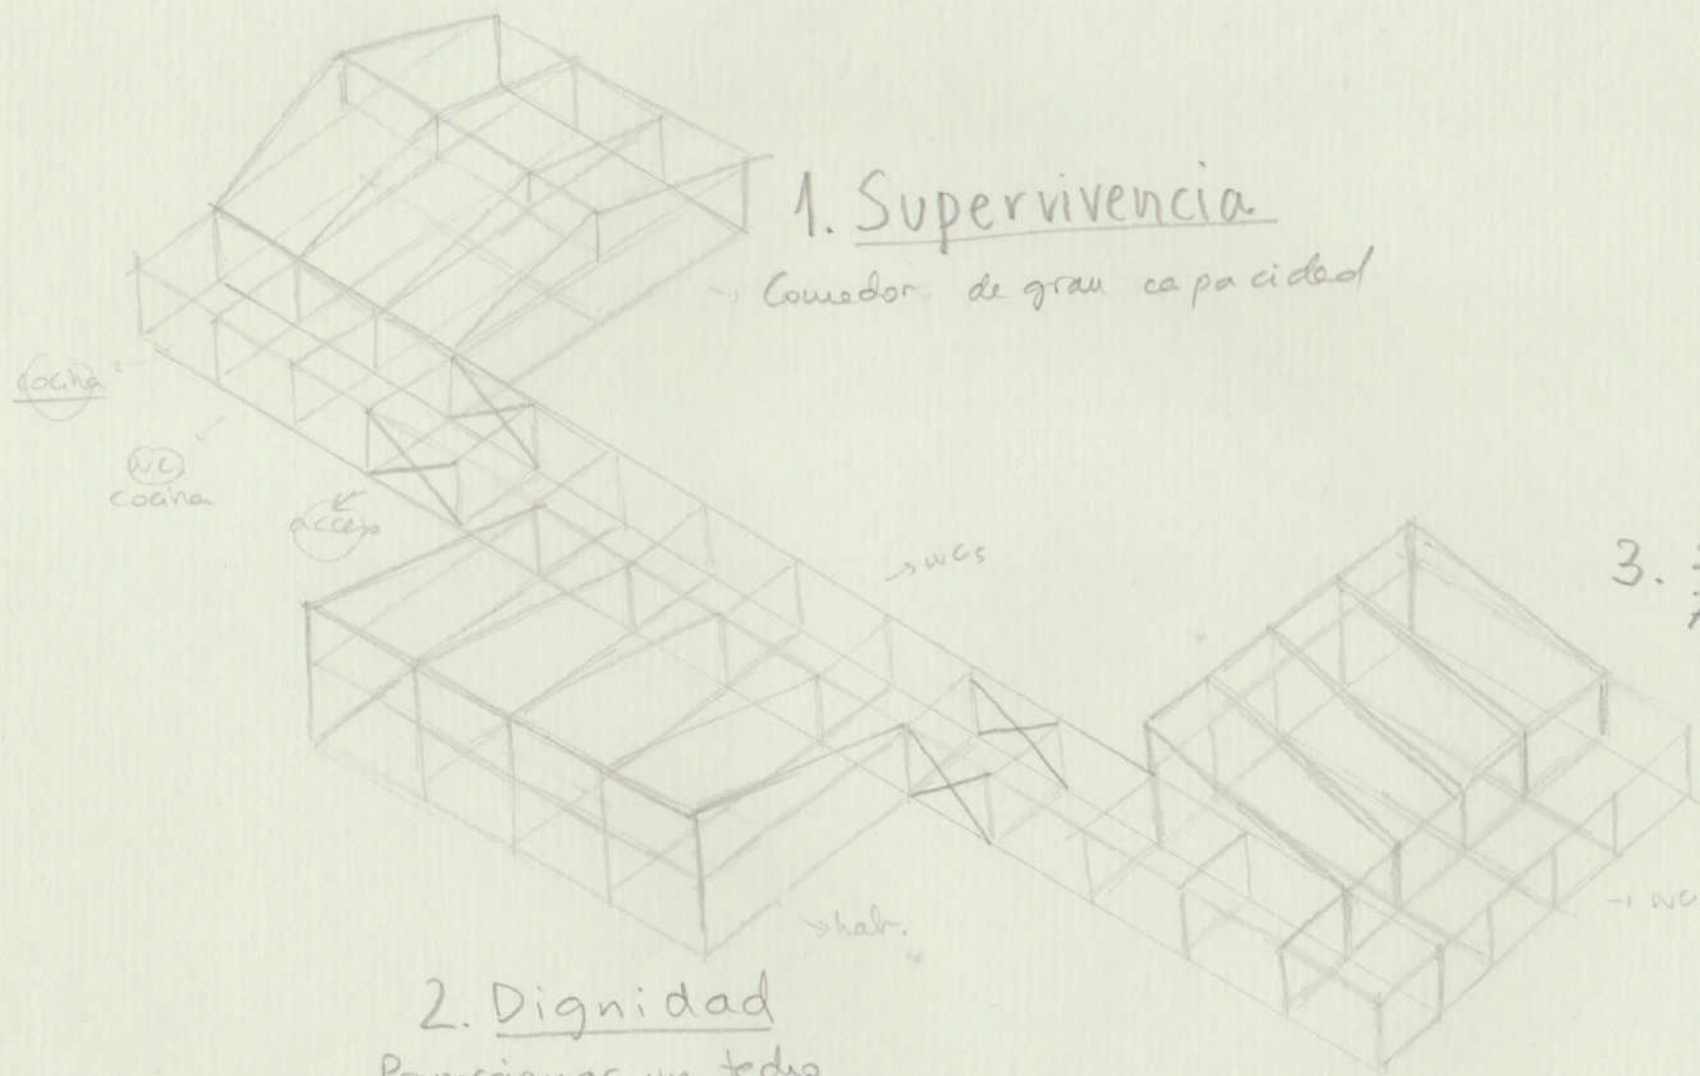 1. Supervivencia
→ Comedor de gran capacidad
cocina
WC
cocina
acceso
→ WCs
3.
→ hab.
→ WC
2. Dignidad
un techo